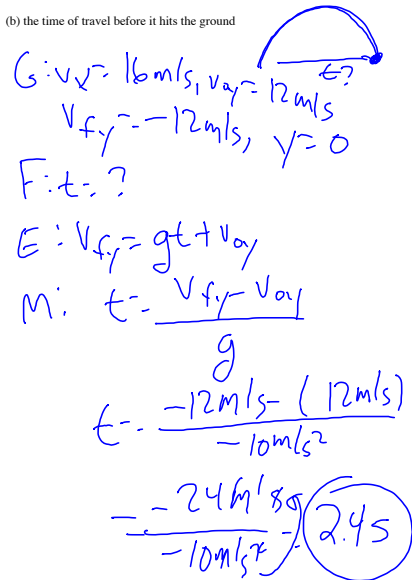 (b) the time of travel before it hits the ground
t?
G: vx = 16m/s, voy = 12m/s
Vfy = -12m/s, y = 0
F: t = ?
E: Vfy = gt + Voy
M: t = Vfy - Voy
g
t = -12m/s - (12m/s)
-10m/s²
= -24m/s
-10m/s² = 2.4s